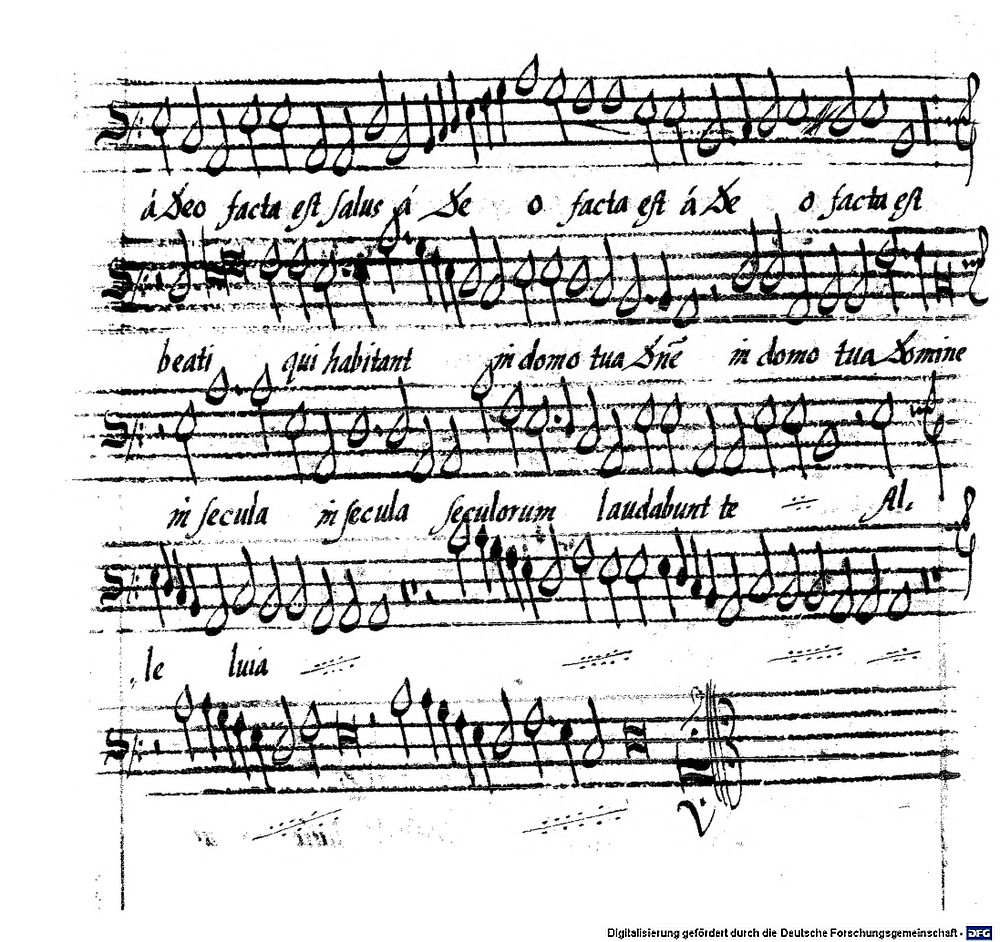 á Deo facta est salus á De o facta est á De o facta est
beati qui habitant in domo tua Dñe in domo tua Domine
in secula in secula seculorum laudabunt te Al.
le luia
Digitalisierung gefördert durch die Deutsche Forschungsgemeinschaft - DFG